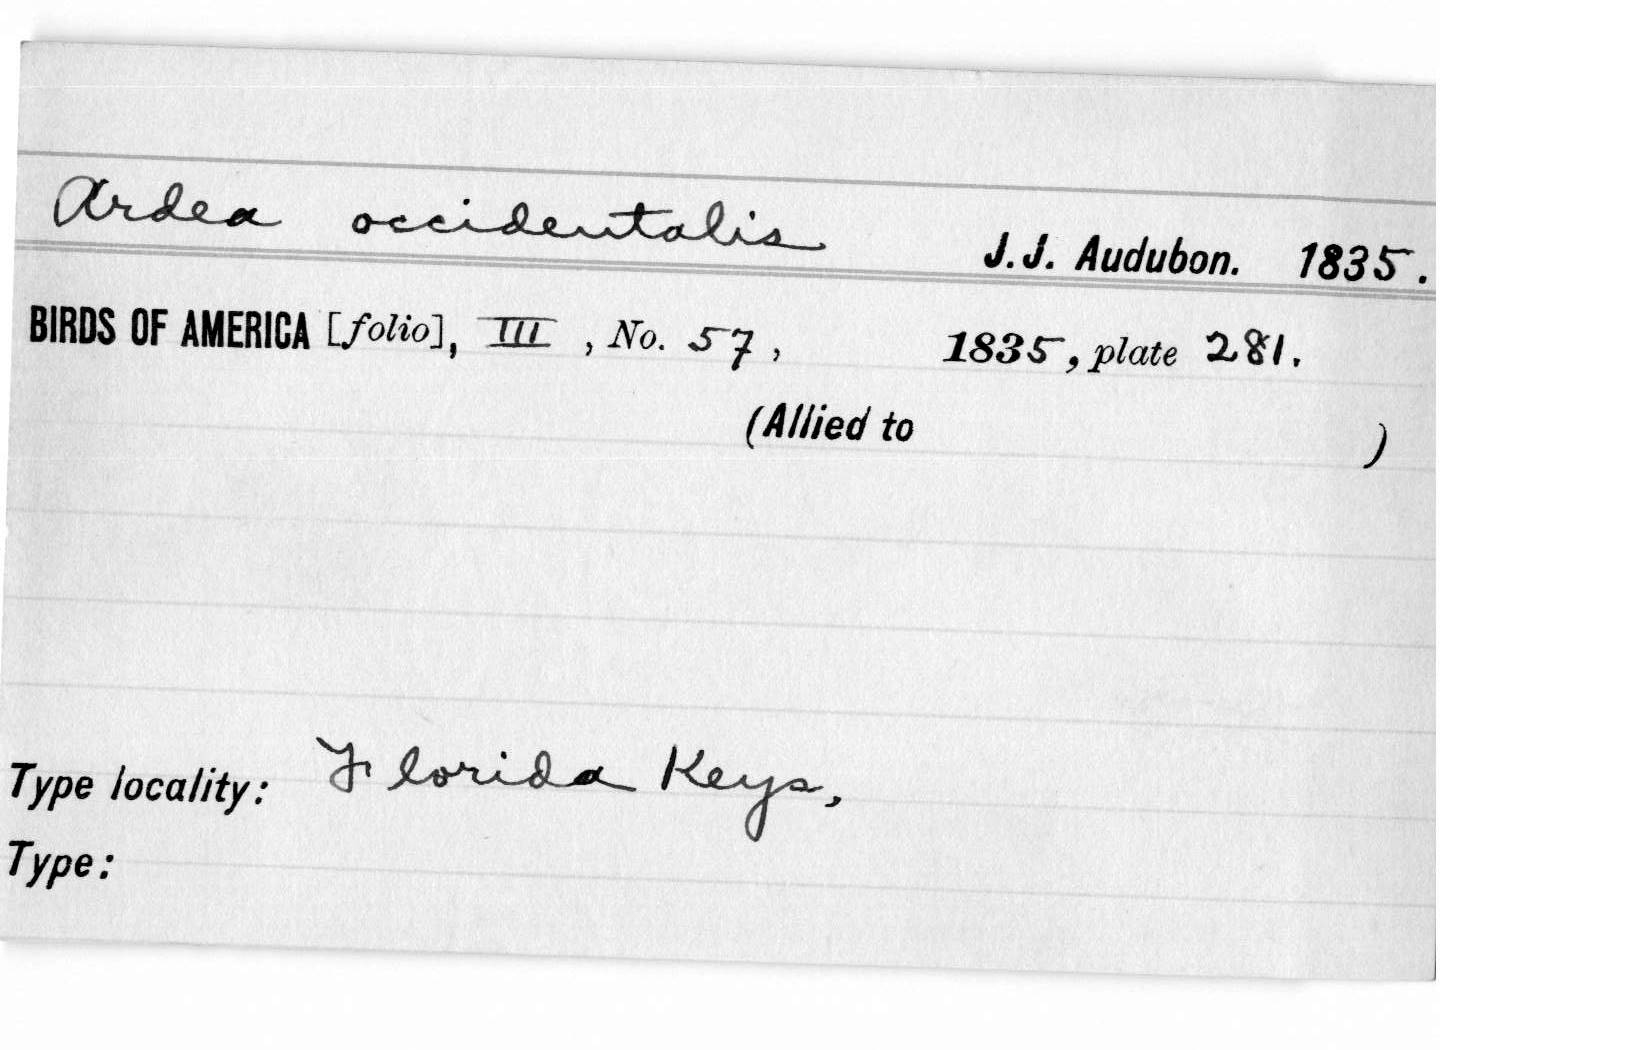 Ardea occidentalis J.J. Audubon. 1835.
BIRDS OF AMERICA [folio], III, No. 57, 1835, plate 281.
(Allied to )
Type locality: Florida Keys,
Type: